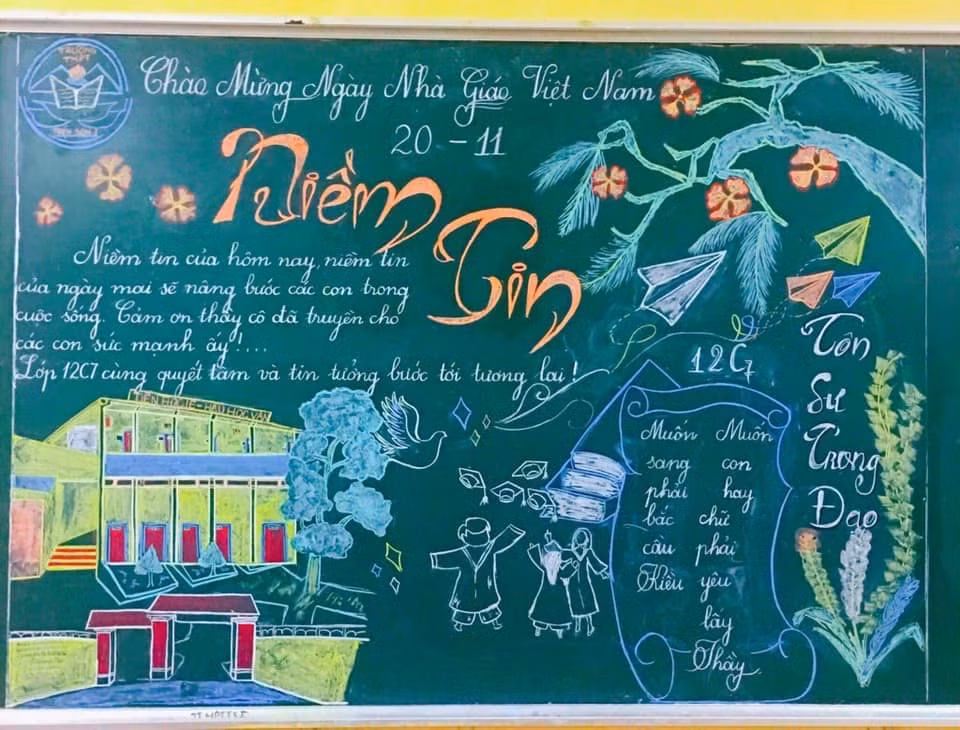 TRƯỜNG
THPT
Chào Mừng Ngày Nhà Giáo Việt Nam
20 - 11
Niềm
Tin
Niềm tin của hôm nay, niềm tin
của ngày mai sẽ nâng bước các con trong
cuộc sống. Cảm ơn thầy cô đã truyền cho
các con sức mạnh ấy!...
Lớp 12C7 cùng quyết tâm và tin tưởng bước tới tương lai!
TIÊN HỌC LỄ - HẬU HỌC VĂN
12C7
Muốn
sang
phải
bắc
cầu
Kiều
Muốn
con
hay
chữ
phải
yêu
lấy
Thầy
Tôn
Sư
Trọng
Đạo